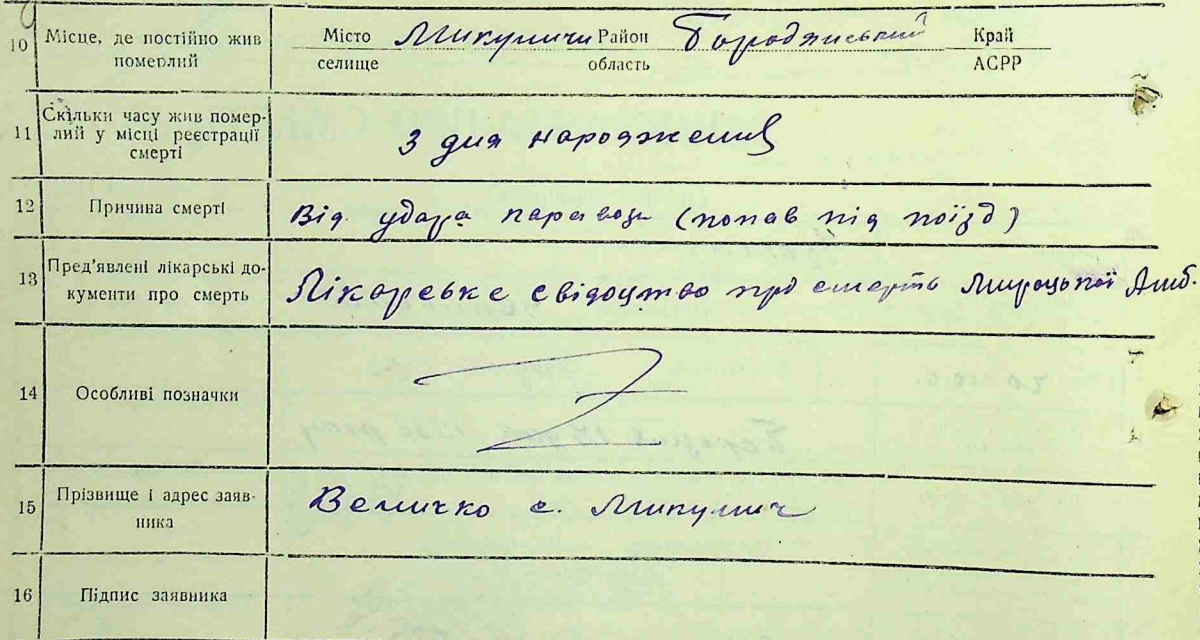 10 Місце, де постійно жив Місто Микуличи Район Бородянський Край
помеплий селище область АСРР
11 Скільки часу жив помер-
лий у місці реєстрації
смерті
З дня народження
12 Причина смерті Від удара паравози (попав під поїзд)
13 Пред'явлені лікарські до-
кументи про смерть
Лікарське свідоцтво про смерть Мироцької Амб.
14 Особливі позначки Z
15 Прізвище і адрес заяв-
ника
Величко с. Микулич
16 Підпис заявника